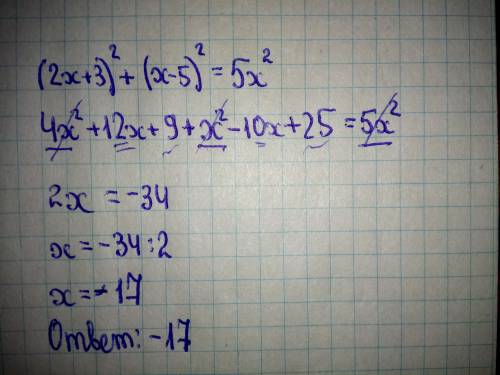 (2x+3)²+(x-5)²=5x²
4x²+12x+9+x²-10x+25=5x²
2x=-34
x=-34:2
x=-17
Ответ: -17